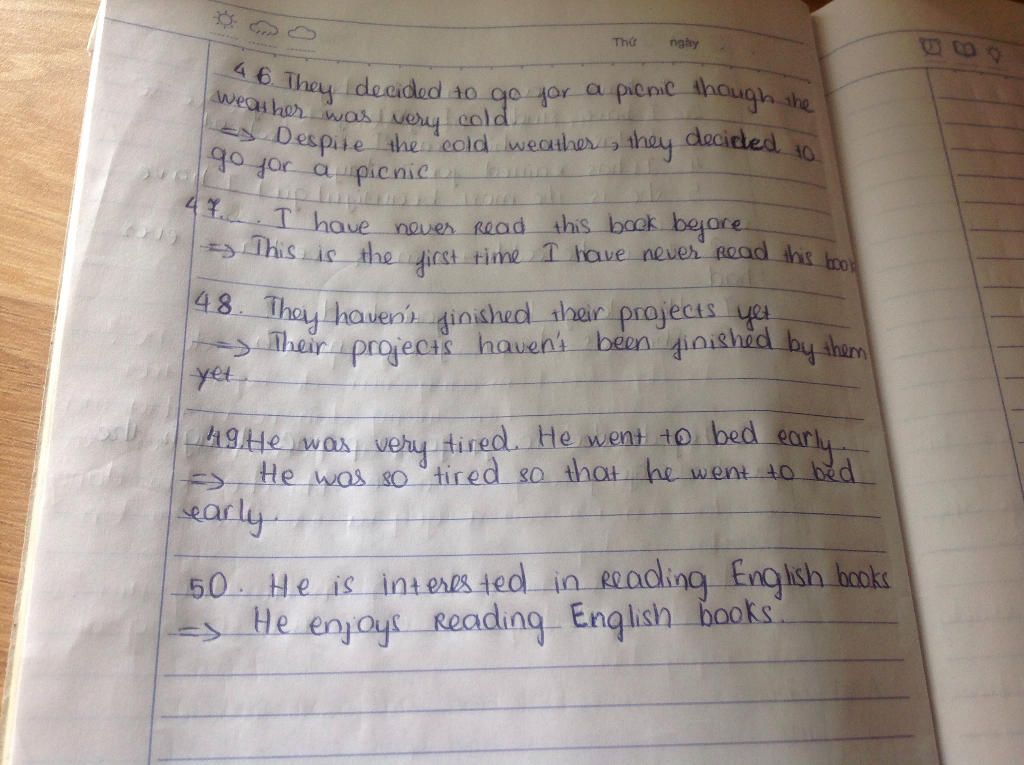 Thứ ngày
46. They decided to go for a picnic though the
weather was very cold.
=> Despite the cold weather, they decided to
go for a picnic.
47..... I have never read this book before
=> This is the first time I have never read this book
48. They haven't finished their projects yet
=> Their projects haven't been finished by them
yet.
49. He was very tired. He went to bed early.
=> He was so tired so that he went to bed
early.
50. He is interested in reading English books
=> He enjoys reading English books.